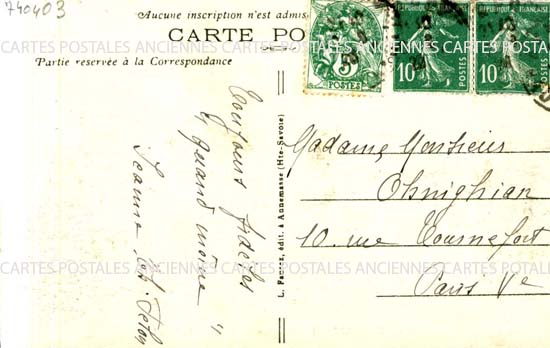 740403
Aucune inscription n'est admis
CARTE PO
Partie réservée à la Correspondance
5
POSTES
RÉPUBLIQUE FRANÇAISE
10
POSTES
RÉPUBLIQUE FRANÇAISE
10
POSTES
Toujours fidèles
" quand même "
Jeanne
L. Fauraz, édit. à Annemasse (Hte-Savoie)
Madame Monsieur
Ohnighian
10 rue Tournefort
Paris Ve
CARTES POSTALES ANCIENNES CARTES POSTALES ANCIENNES
CARTES POSTALES ANCIENNES CARTES POSTALES ANCIENNES
CARTES POSTALES ANCIENNES CARTES POSTALES ANCIENNES